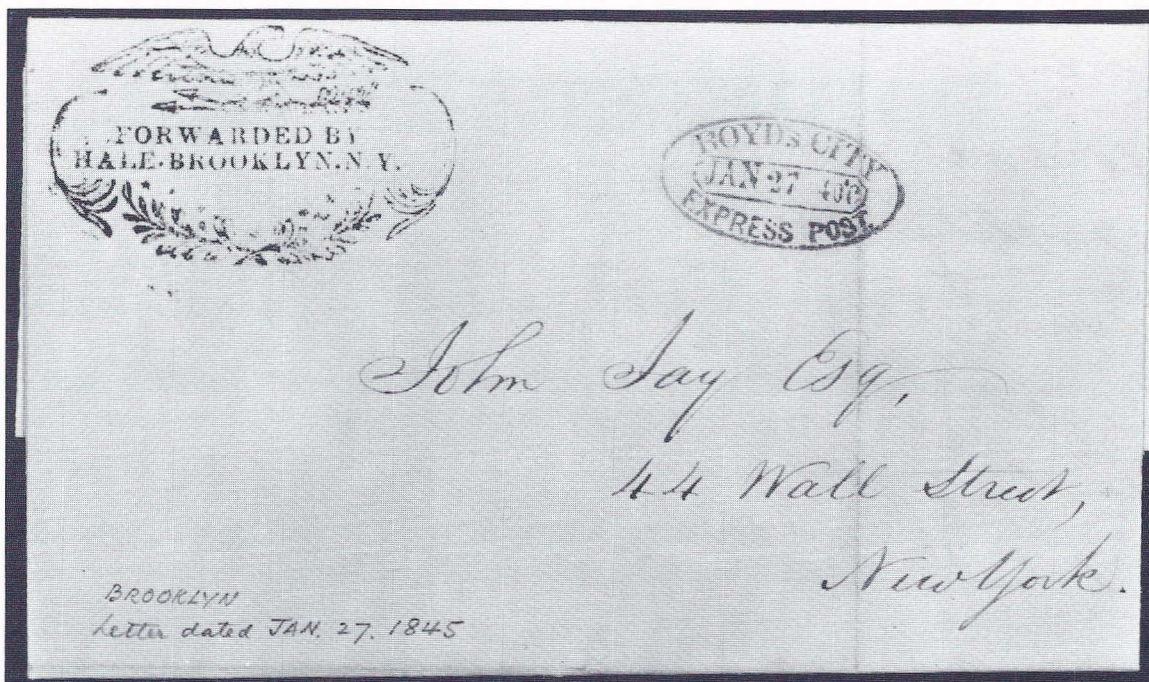 FORWARDED BY
HALE·BROOKLYN.N.Y.
BOYD's CITY
JAN 27
EXPRESS POST
John Jay Esq,
44 Wall Street,
New York.
BROOKLYN
Letter dated JAN. 27. 1845